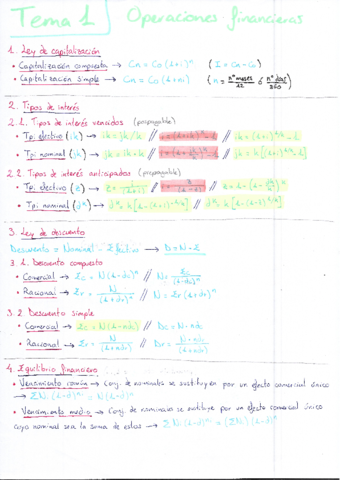 Tema 1 Operaciones financieras
1. Ley de capitalización
• Capitalización compuesta → Cn = Co (1+i)ⁿ (I = Cn - Co)
• Capitalización simple → Cn = Co (1+ni) (n = nº meses/12 ó nº días/360)
2. Tipos de interés
2.1. Tipos de interés vencidos (postpagable)
• Tpi. efectivo (ik) → ik = jk/k //
• Tpi nominal (jk) → jk = ik·k //
2.2. Tipos de interés anticipados (prepagable)
• Tpi. efectivo
• Tpi. nominal
3. Ley de descuento
Descuento = Nominal - Efectivo → D = N - E
3.1. Descuento compuesto
• Comercial → Ec = N(1-d)ⁿ // N = Ec/(1-d)ⁿ
• Racional → Er = N/(1+i)ⁿ // N = Er (1+i)ⁿ
3.2. Descuento simple
• Comercial → Ec = N(1-nd) // Dc = N·nd
• Racional → Er = N/(1+ni) // Dr = N·ni/(1+ni)
4. Equilibrio financiero
• Vencimiento común → Conj. de nominales se sustituyen por un efecto comercial único
→ ΣN (1-d)ⁿ = N(1-d)ⁿ
• Vencimiento medio → Conj. de nominales se sustituye por un efecto comercial único
cuyo nominal sea la suma de estos → ΣN (1-d)ⁿ = [ΣN] (1-d)ⁿ